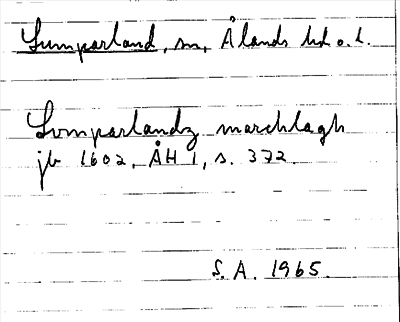 Lumparland, sn, Ålands hd o. l.
Lvmparlandz marchlagh
jb 1602, ÅH 1, s. 372.
S.A. 1965.